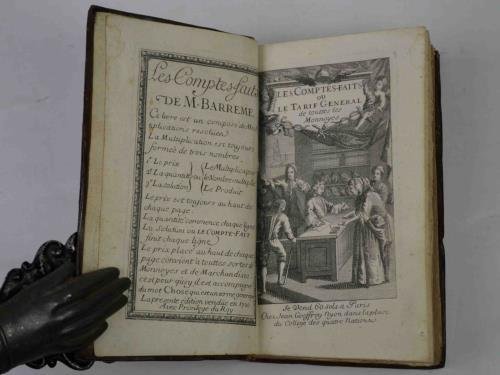 Les Comptes-faits
DE M. BARREME.
Ce livre est un composé de Mul
tiplications resolues.
La Multiplication est toujours
formée de trois nombres.
1º Le prix
2º La quantité
3º La solution
ou
Le Multiplicateur
le Nombre multiplié
Le Produit
Le prix est toujours au haut de
chaque page.
La quantité commence chaque ligne
La Solution ou LE COMPTE-FAIT
finit chaque ligne.
Le prix placé au haut de chaque
page convient à touttes sortes de
Monnoyes et de Marchandise
c'est pour quoy il est accompagné
du mot Chose qui est un terme general
La presente édition vendue en
Avec Privilege du Roy
LES COMPTES-FAITS
OU
LE TARIF GENERAL
de touttes les
Monnoyes
Se Vend 60 sols a Paris
Chez Jean Geoffroy Nyon, dans la place
du College des quatre Nations.